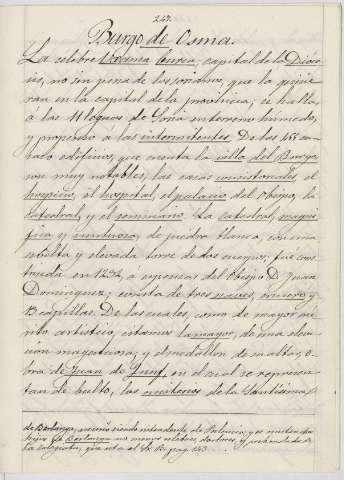 247.
Burgo de Osma.
La célebre Uxama, capital de la Dióce-
sis, no sin pena de los sorianos, que la quisie-
ran en la capital de la provincia, se halla
á las 11 leguas de Soria en terreno húmedo,
y propenso a las intermitentes. De los
edificios, que cuenta la villa del Burgo
son muy notables, las casas consistoriales, el
hospicio, el hospital, el palacio del Obispo, la
catedral, y el seminario. La catedral, magní-
fica y suntuosa, de piedra blanca, con una
esbelta y elevada torre de dos cuerpos, fué cons-
truida en 1232, a espensas del Obispo D. Juan
Dominguez; consta de tres naves, crucero y
capillas. De las cuales, como de mayor mé-
rito artístico, citamos la mayor, de una eleva-
cion magestuosa, y el medallon de malta, o-
bra de Juan de Juni, en el cual se represen-
tan de bulto, los misterios de la Santísima
de Berlanga, murió siendo intendente de Palencia, y es
hijo de Berlanga no menos celebre doctores, y prebendado de
la colegiata, que está al pag. 143